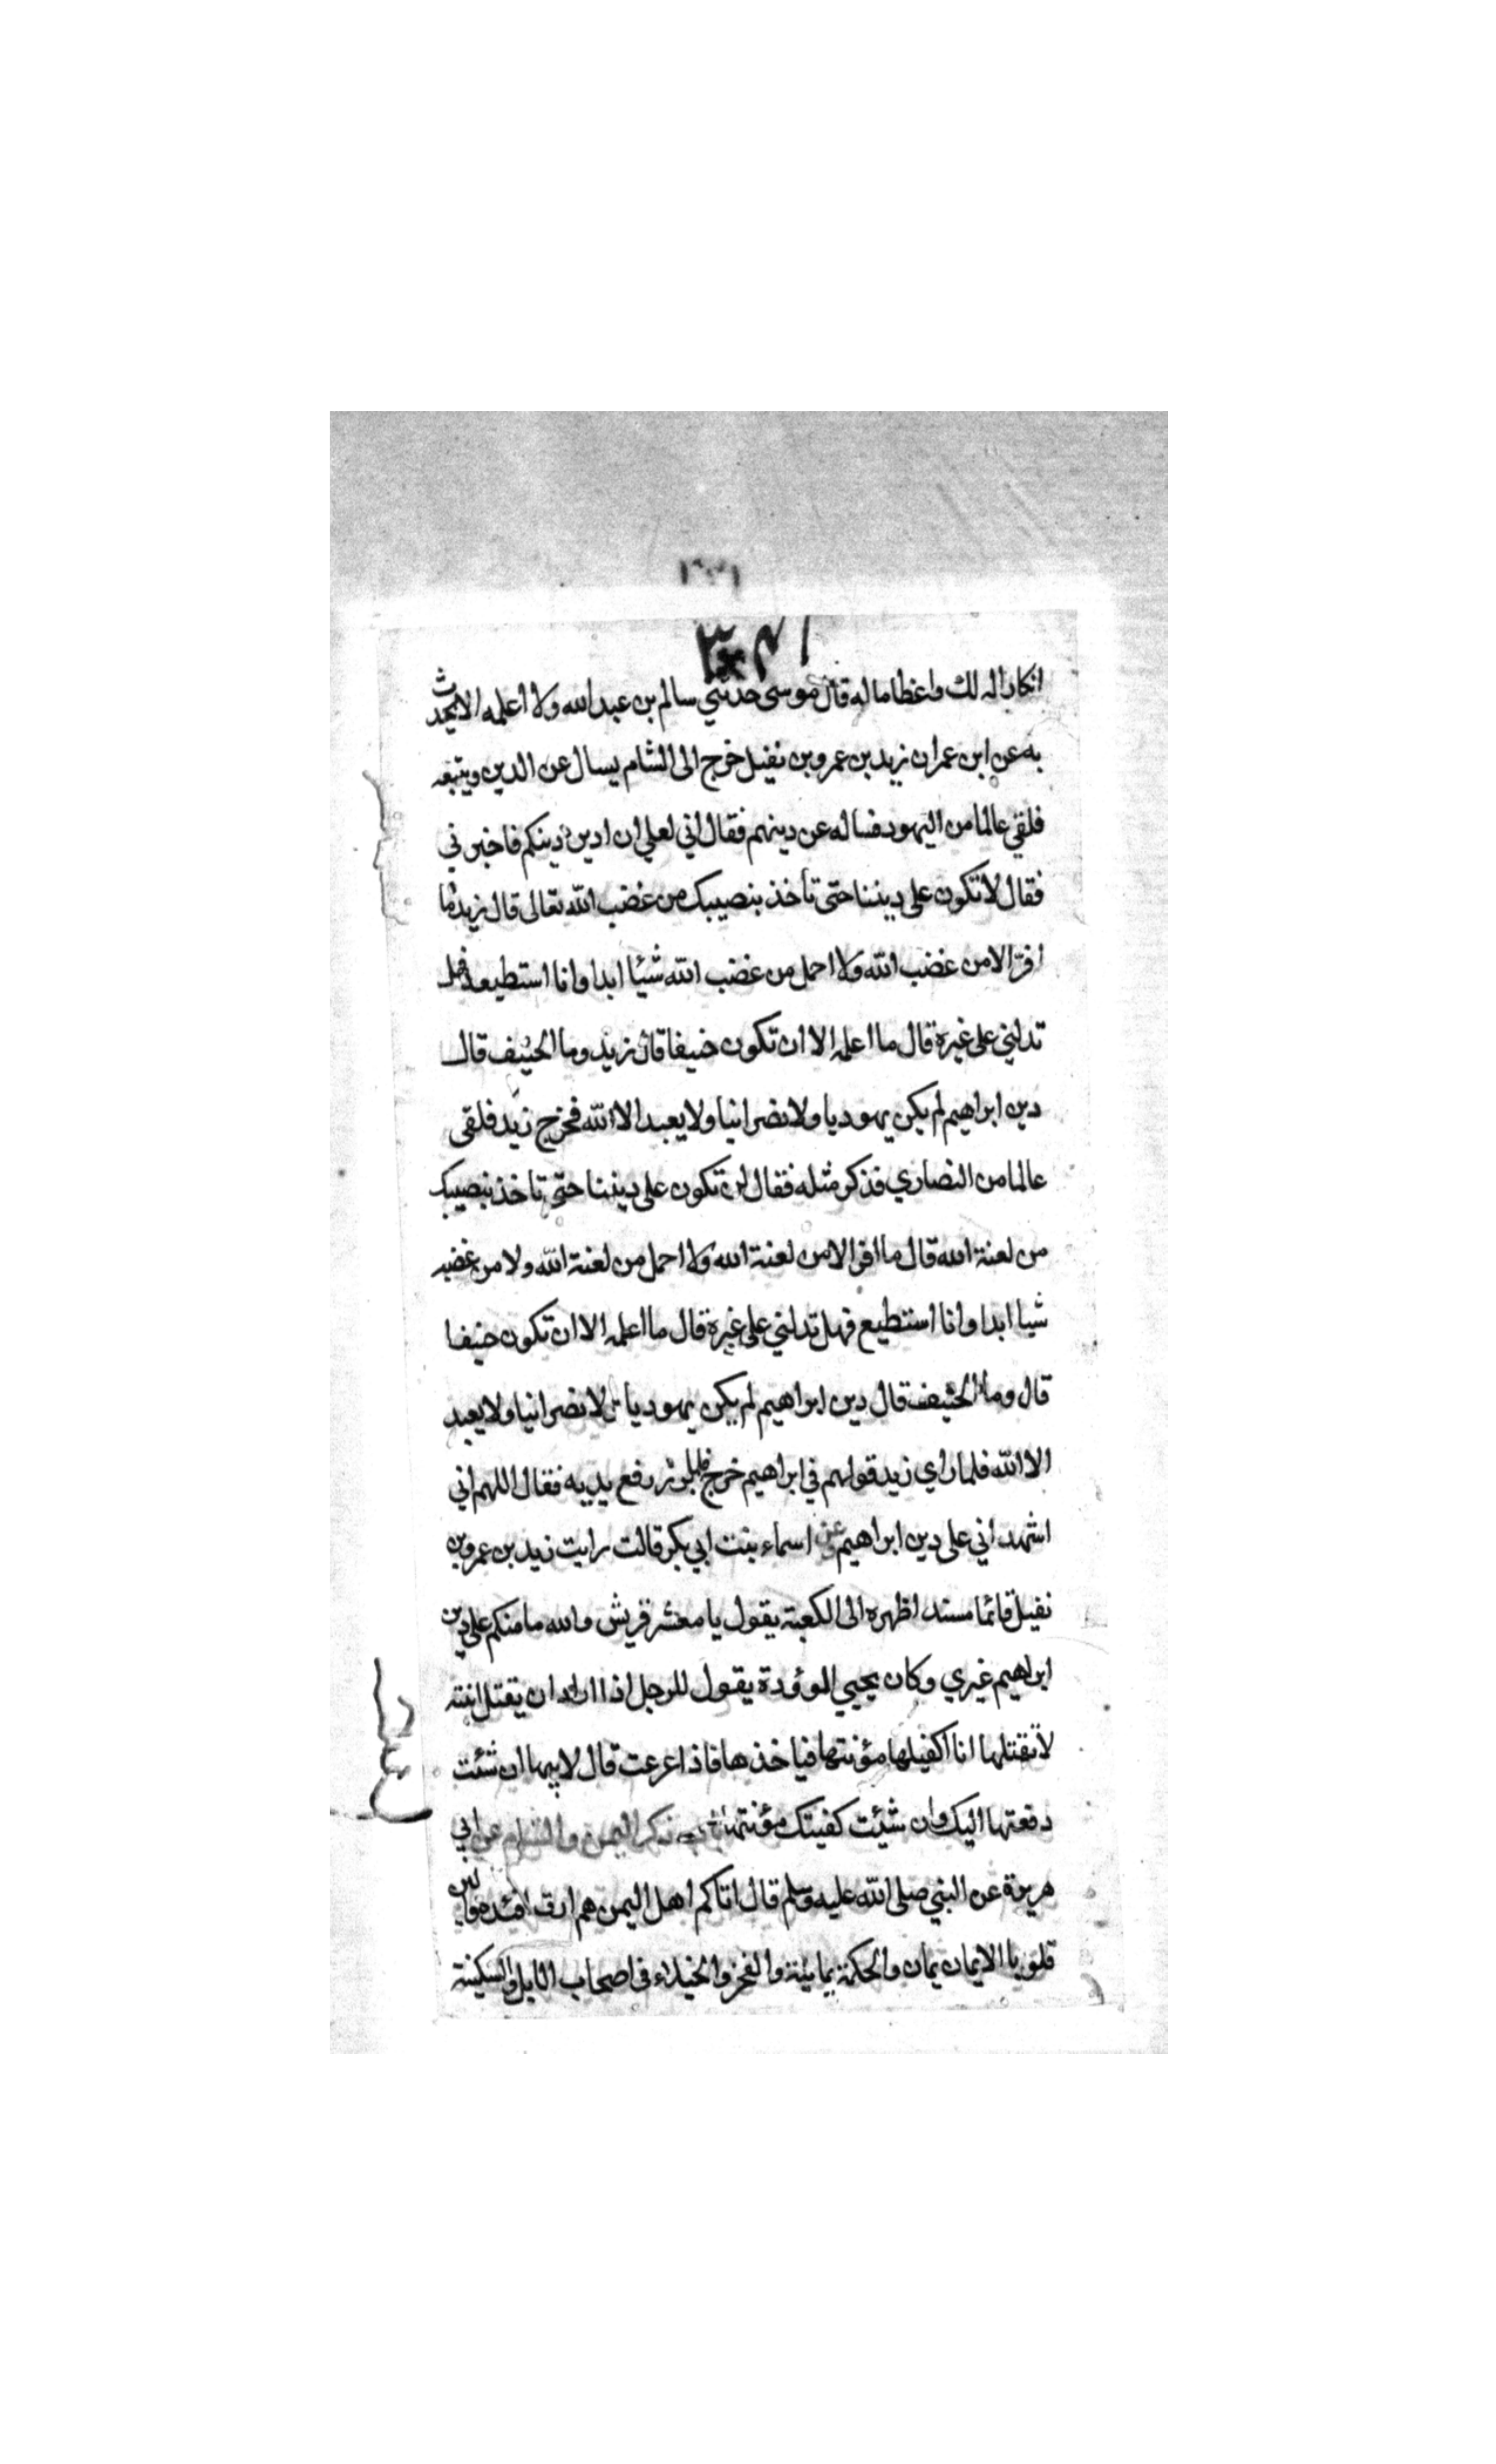 انكارا لذلك واعظاما له قال موسى حدثني سالم بن عبد الله ولا اعلمه الا يحدث
به عن ابن عمر ان زيد بن عمرو بن نفيل خرج الى الشام يسال عن الدين ويتبعه
فلقي عالما من اليهود فساله عن دينهم فقال اني لعلي ان ادين دينكم فاخبرني
فقال لا تكون على ديننا حتى تأخذ بنصيبك من غضب الله تعالى قال زيد ما
افر الا من غضب الله ولا احمل من غضب الله شيئا ابدا وانا استطيعه فهل
تدلني على غيره قال ما اعلمه الا ان تكون حنيفا قال زيد وما الحنيف قال
دين ابراهيم لم يكن يهوديا ولا نصرانيا ولا يعبد الا الله فخرج زيد فلقي
عالما من النصاري فذكر مثله فقال لن تكون على ديننا حتى تاخذ بنصيبك
من لعنة الله قال ما افر الا من لعنة الله ولا احمل من لعنة الله ولا من غضبه
شيا ابدا وانا استطيع فهل تدلني على غيره قال ما اعلمه الا ان تكون حنيفا
قال وما الحنيف قال دين ابراهيم لم يكن يهوديا ولا نصرانيا ولا يعبد
الا الله فلما راي زيد قولهم في ابراهيم خرج فلما برز رفع يديه فقال اللهم اني
اشهد اني على دين ابراهيم عن اسماء بنت ابي بكر قالت رايت زيد بن عمرو بن
نفيل قائما مسندا ظهره الى الكعبة يقول يا معشر قريش والله ما منكم على دين
ابراهيم غيري وكان يحيي الموؤدة يقول للرجل اذا اراد ان يقتل ابنته
لا تقتلها انا اكفيلها مؤنتها فياخذها فاذا عرعت قال لابيها ان شئت
دفعتها اليك وان شئت كفيتك مؤنتها باب ذكر اليمن والشام عن ابي
هريرة عن النبي صلى الله عليه وسلم قال اتاكم اهل اليمن هم ارق افئدة والين
قلوبا الايمان يمان والحكمة يمانية والفخر والخيلاء في اصحاب الابل والسكينة